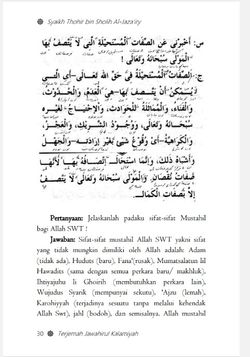 Syaikh Thohir bin Sholih Al-Jaza'iry
س: أخبرني عن الصفات المستحيلة التي لا يتصف بها
المولى سبحانه وتعالى!
ج: الصفات المستحيلة في حق الله تعالى—أي التي
لا يمكن أن يتصف بها—هي العدم، والحدوث،
والفناء، والمماثلة للحوادث، والإحتياج لغيره
سبحانه وتعالى، ووجود الشريك، والعجز،
والكراهية—أي وقوع شيء بغير إرادته—والجهل
وأشباه ذلك، وإنما استحال اتصافه بها لأنها
صفات نقصان، والمولى سبحانه وتعالى لا يتصف
إلا بصفات الكمال.
Pertanyaan: Jelaskanlah padaku sifat-sifat Mustahil
bagi Allah SWT !
Jawaban: Sifat-sifat mustahil Allah SWT yakni sifat
yang tidak mungkin dimiliki oleh Allah adalah: Adam
(tidak ada), Huduts (baru), Fana'(rusak), Mumatsalatun lil
Hawadits (sama dengan semua perkara baru/ makhluk),
Ihtiyajuhu li Ghoirih (membutuhkan perkara lain),
Wujudus Syarik (mempunyai sekutu), 'Ajzu (lemah),
Karohiyyah (terjadinya sesuatu tanpa melalui kehendak
Allah Swt), jahl (bodoh), dan semisalnya. Allah mustahil
30 Terjemah Jawahirul Kalamiyah